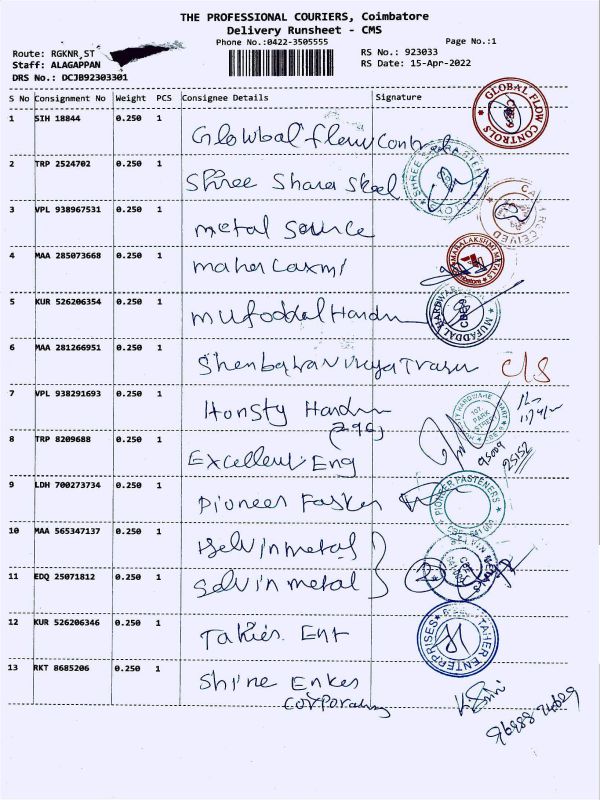 THE PROFESSIONAL COURIERS, Coimbatore
Delivery Runsheet - CMS
Phone No.:0422-3505555 Page No.:1
Route: RGKNR,ST RS No.: 923033
Staff: ALAGAPPAN RS Date: 15-Apr-2022
DRS No.: DCJB92303301
S No Consignment No Weight PCS Consignee Details Signature
1 SIH 18844 0.250 1 Glowbal flow Control GLOBAL FLOW CONTROLS
2 TRP 2524702 0.250 1 Shree Shara Steel
3 VPL 938967531 0.250 1 metal source RECEIVED
4 MAA 285073668 0.250 1 maha Laxmi MAHALAKSHMI METALS
5 KUR 526206354 0.250 1 Mufoddal Hardw MUFADDAL HARDWARE
6 MAA 281266951 0.250 1 C/S
7 VPL 938291693 0.250 1 Honsty Hardw HARDWARE MART 107 PARK STREET
(296)
8 TRP 8209688 0.250 1 Excellent Eng 95009 25152
9 LDH 700273734 0.250 1 Pioneer Fasten PIONEER FASTENERS CBE 641 009
10 MAA 565347137 0.250 1 Selvin metal
11 EDQ 25071812 0.250 1 Selvin metal 2
12 KUR 526206346 0.250 1 Takies Ent TAHER ENTERPRISES
13 RKT 8685206 0.250 1 Shine Enter
Corporation